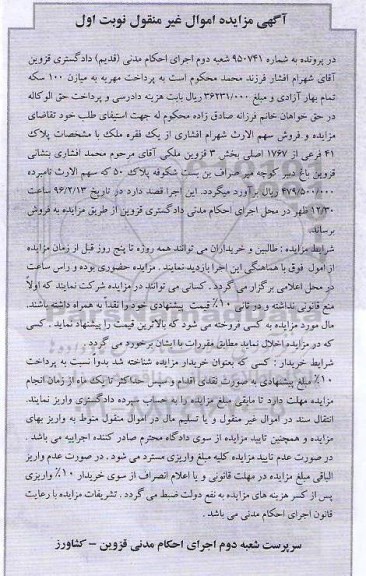 آگهی مزایده اموال غیر منقول نوبت اول
در پرونده به شماره ۹۵۰۷۴۱ شعبه دوم اجرای احکام مدنی (قدیم) دادگستری قزوین
آقای شهرام افشار فرزند محمد محکوم است به پرداخت مهریه به میزان ۱۰۰ سکه
تمام بهار آزادی و مبلغ ۳۶۲۳۱/۰۰۰ ریال بابت هزینه دادرسی و پرداخت حق الوکاله
در حق خواهان خانم فرزانه صادق زاده محکوم له جهت استیفای طلب خود تقاضای
مزایده و فروش سهم الارث شهرام افشاری از یک فقره ملک با مشخصات پلاک
۴۱ فرعی از ۱۷۶۷ اصلی بخش ۳ قزوین ملکی آقای مرحوم محمد افشاری بنشانی
قزوین باغ دبیر کوچه میرصراف بن بست شکوفه پلاک ۵۰ که سهم الارث نامبرده
۴۷۹/۵۰۰/۰۰۰ ریال برآورد میگردد. این اجرا قصد دارد در تاریخ ۹۶/۲/۱۳ ساعت
۱۲/۳۰ ظهر در محل اجرای احکام مدنی دادگستری قزوین از طریق مزایده به فروش
برساند.
شرایط مزایده : طالبین و خریداران می توانند همه روزه تا پنج روز قبل از زمان مزایده
از اموال فوق با هماهنگی این اجرا بازدید نمایند . مزایده حضوری بوده و راس ساعت
در محل اعلامی برگزار می گردد . کسانی می توانند در مزایده شرکت نمایند که اولاً
منع قانونی نداشته و در ثانی ۱۰٪ قیمت پیشنهادی خود را نقداً به همراه داشته باشند.
مال مورد مزایده به کسی فروخته می شود که بالاترین قیمت را پیشنهاد نماید . کسی
که در مزایده اخلال نماید مطابق مقررات با ایشان برخورد می گردد .
شرایط خریدار : کسی که بعنوان خریدار مزایده شناخته شد بدواً نسبت به پرداخت
۱۰٪ مبلغ پیشنهادی به صورت نقدی اقدام و سپس حداکثر تا یک ماه از زمان انجام
مزایده مهلت دارد تا مابقی مبلغ مزایده را به حساب سپرده دادگستری واریز نمایند.
انتقال سند در اموال غیر منقول و یا تسلیم مال در اموال منقول منوط به واریز بهای
مزایده و همچنین تایید مزایده از سوی دادگاه محترم صادر کننده اجراییه می باشد .
در صورت عدم تایید مزایده کلیه مبلغ واریزی مسترد می شود . در صورت عدم واریز
الباقی مبلغ مزایده در مهلت قانونی و یا اعلام انصراف از سوی خریدار ۱۰٪ واریزی
پس از کسر هزینه های مزایده به نفع دولت ضبط می گردد . تشریفات مزایده با رعایت
قانون اجرای احکام مدنی می باشد .
سرپرست شعبه دوم اجرای احکام مدنی قزوین – کشاورز